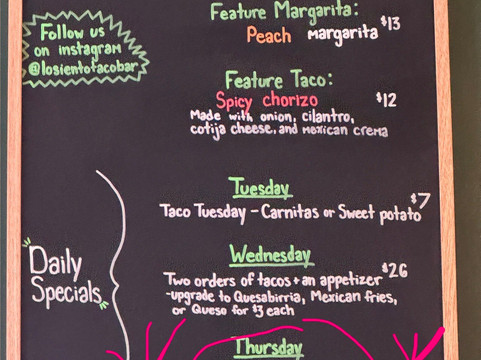 Follow us
on instagram
@losientotacobar
Feature Margarita:
Peach margarita $13
Feature Taco:
Spicy chorizo $12
Made with onion, cilantro,
cotija cheese, and mexican crema
Daily
Specials
Tuesday
Taco Tuesday - Carnitas or Sweet potato $7
Wednesday
Two orders of tacos + an appetizer $26
-upgrade to Quesabirria, Mexican fries,
or Queso for $3 each
Thursday